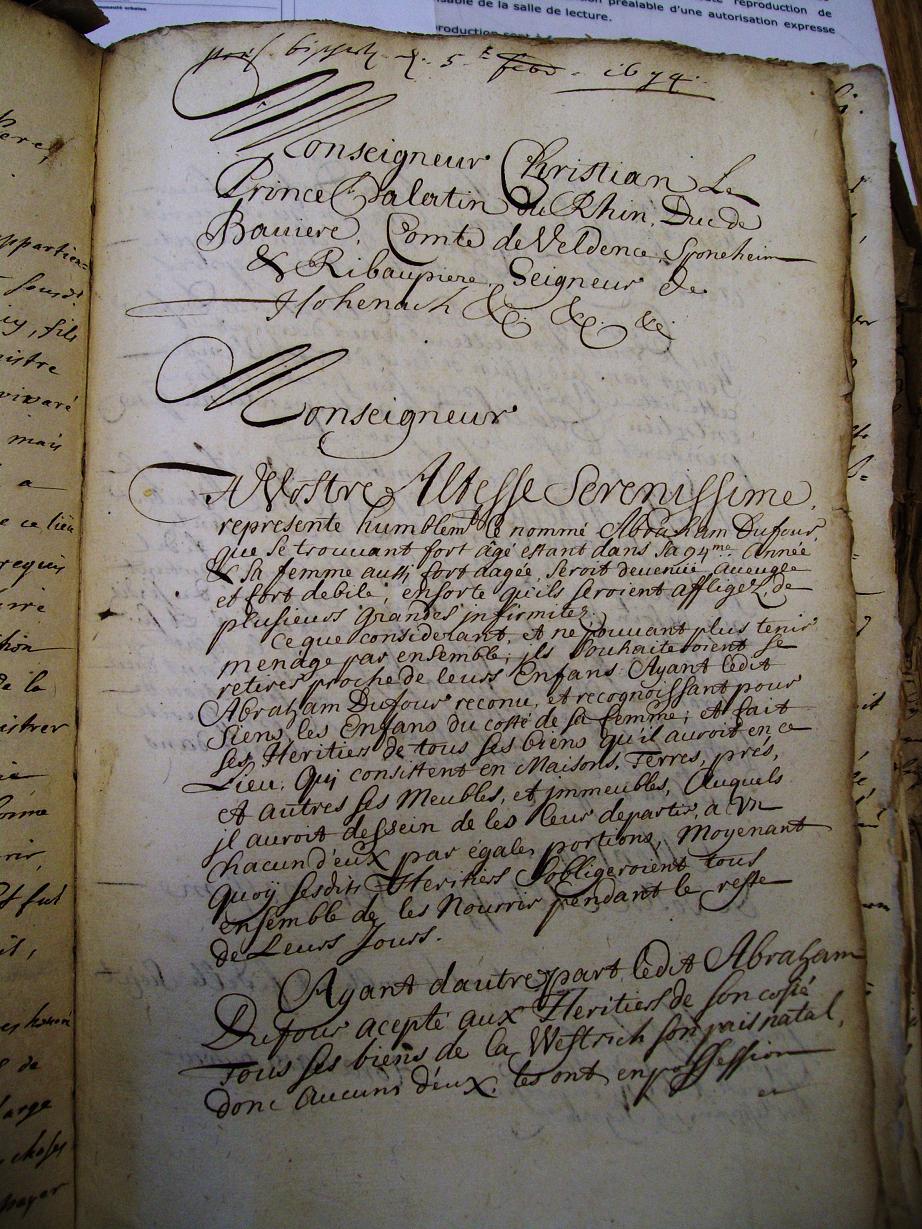 reproduction de
sable de la salle de lecture.
préalable d'une autorisation expresse
roduction
5.t febr. 1674.
Monseigneur Christian Le
Prince Palatin du Rhin, Duc de
Baviere, Comte de Veldence, Sponeheim
& Ribaupiere, Seigneur de
Hohenach &c. &c. &c.
Monseigneur
A Vostre Altesse Serenissime,
represente humblemt. le nommé Abraham Dufour,
que se trouvant fort agé estant dans sa 94me. Année
& sa femme aussi fort dagée, seroit devenüe aveugle
et fort debile, ensorte qu'ils seroient affligez de
plusieurs grandes jnfirmitez.
Ce que considerant, et ne pouvant plus tenir
menage par ensemble, jls souhaiteroient se
retirer proche de leurs Enfans: Ayant ledit
Abraham Dufour reconu, et recognoissant pour
siens, les Enfans du costé de sa femme; et fait
ses Heritiers de tous ses biens qu'il auroit en ce
Lieu, Qui consistent en Maisons, Terres, prés,
et autres ses Meubles, et jmmeubles, Auquels
jl auroit dessein de les leur departir, a Vn
chacun d'eux par égales portions, Moyenant
quoy sesdits Heritiers s'obligeroient tous
ensemble de les Nourrir pendant le reste
de Leurs Jours.
Ayant dautre part ledit Abraham
Dufour acepté aux Heritiers de son costé
Tous ses biens de la Westrich son païs natal,
donc aucuns d'eux les ont en possession
en